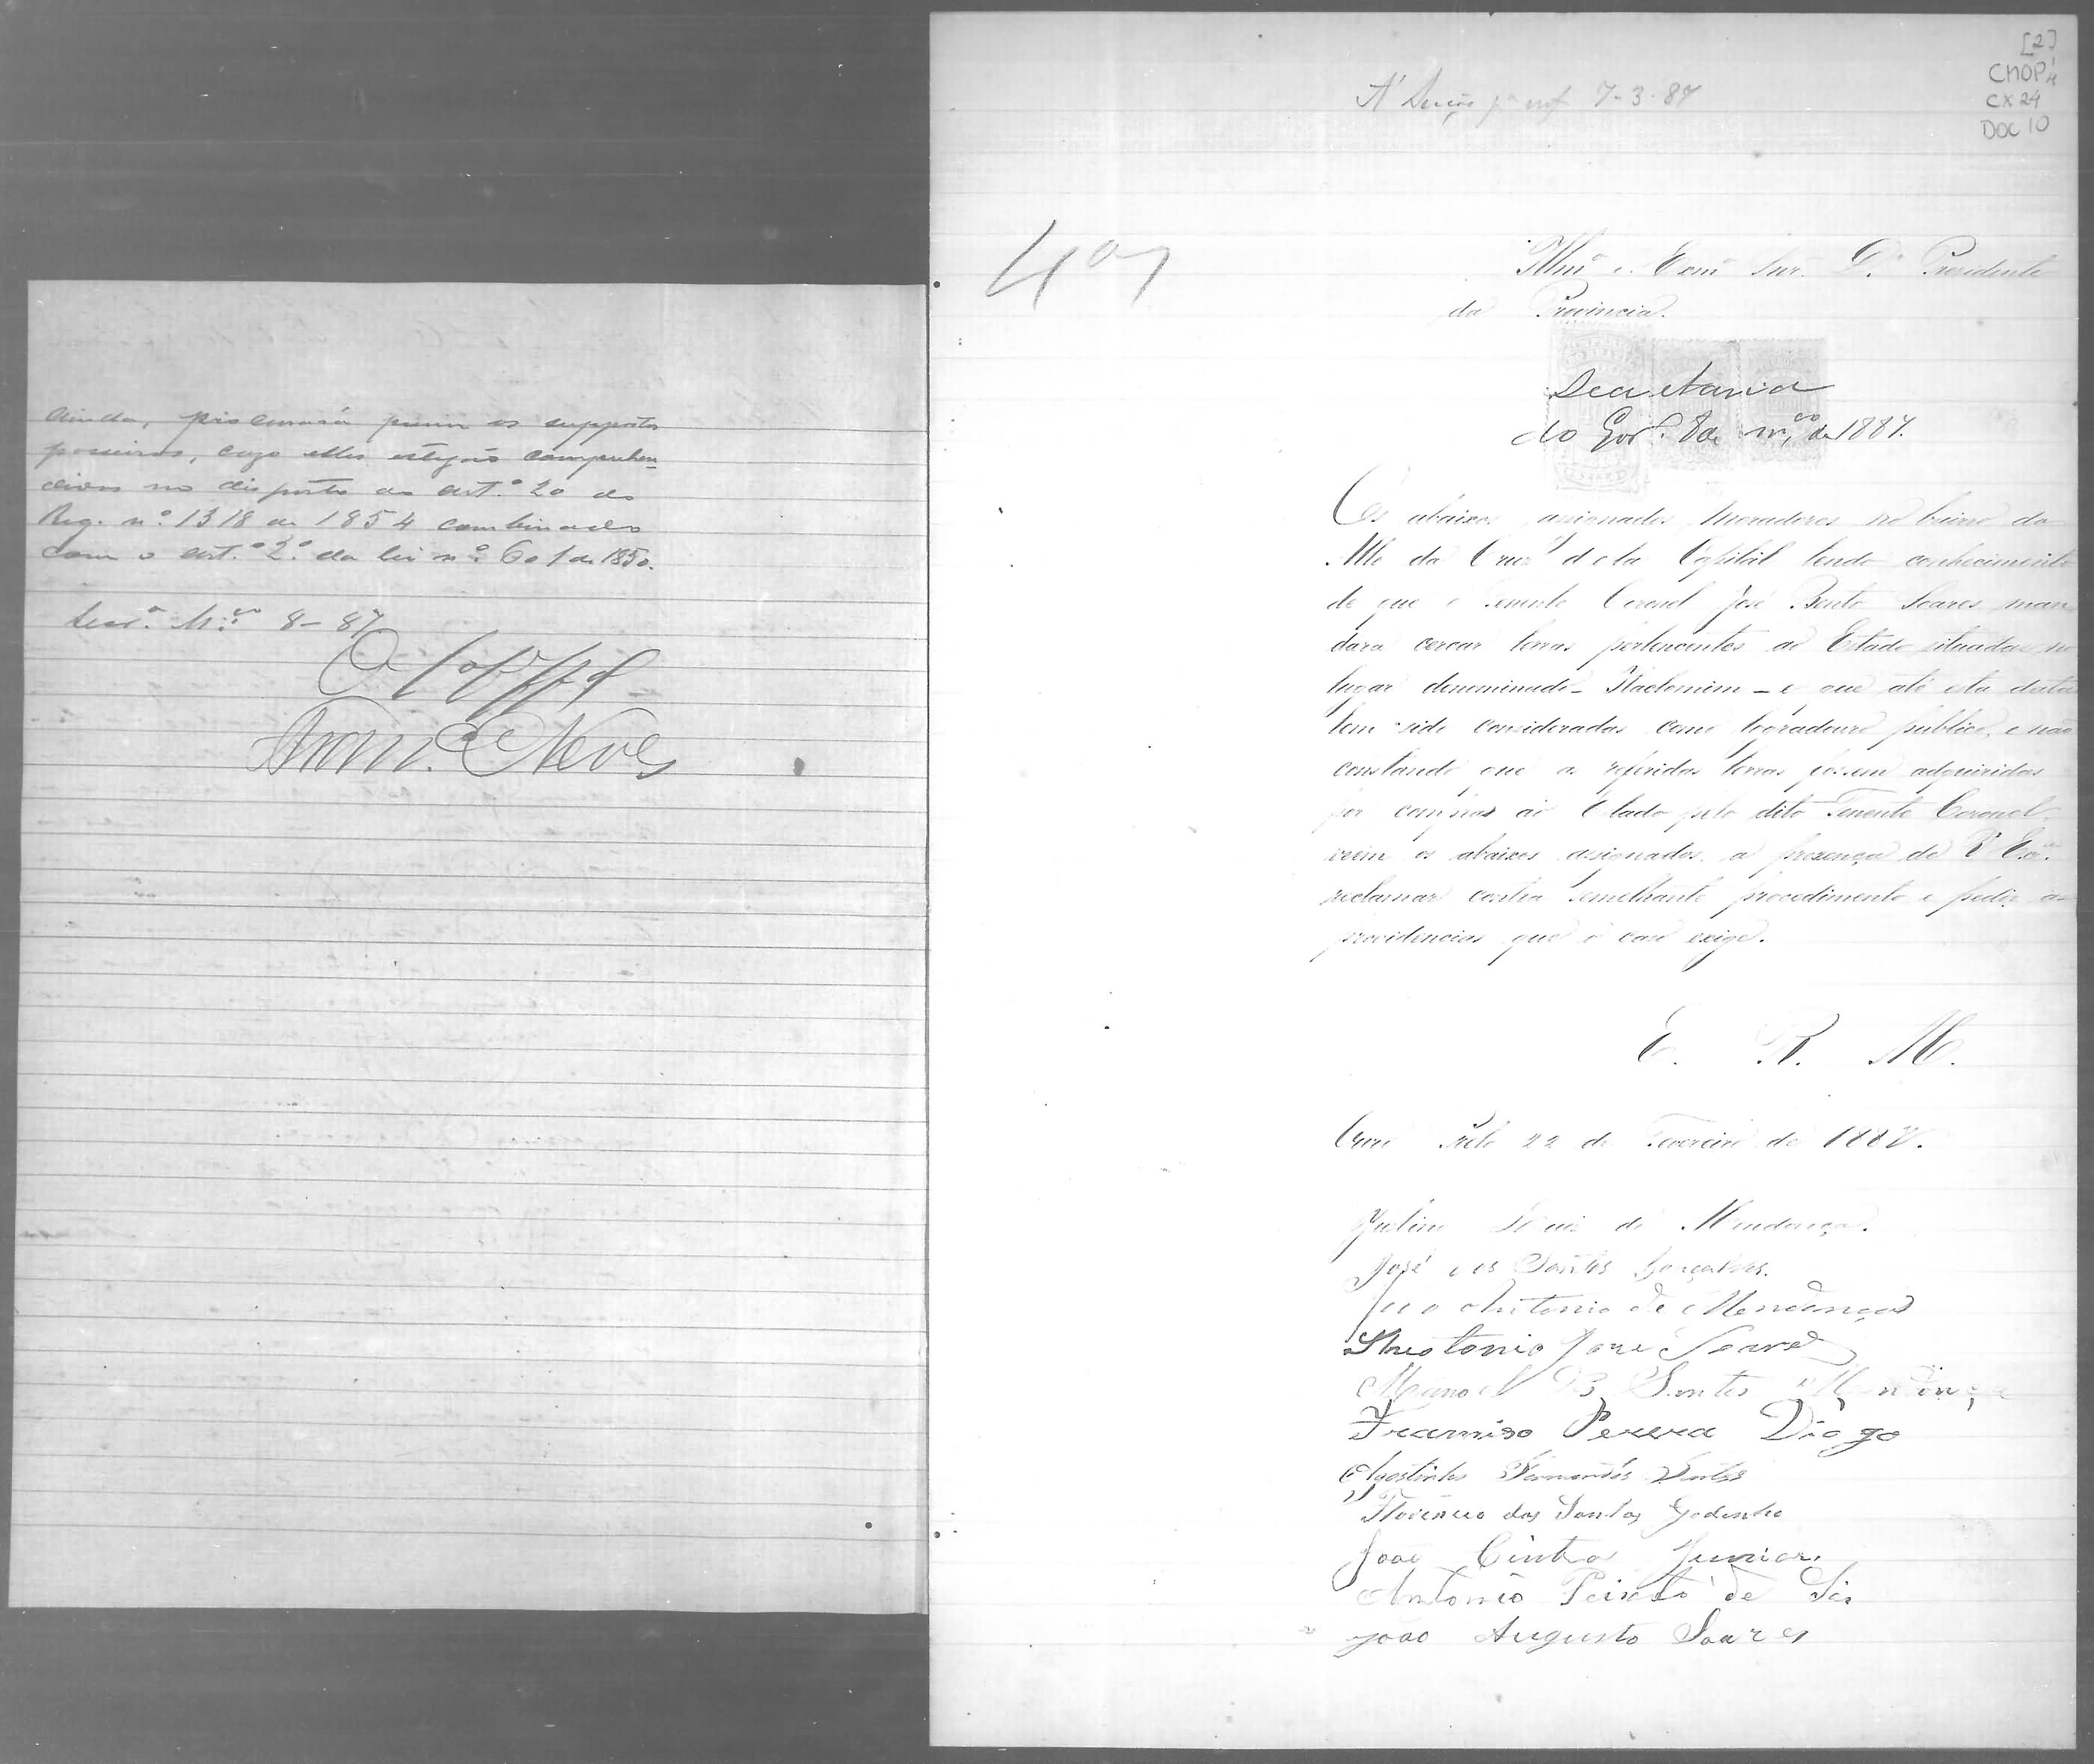 ainda, procurará punir os suppostos
posseiros, cazo elles estejão comprehen-
didos no disposto do art.º 20 do
Reg. nº 1318 de 1854 combinado
com o art.º 2º da lei nº 601 de 1850.
Secr.ª M.ço 8-87
O Off.al
Neves
[2]
CMOP
CX 24
DOC 10
A' Secção pª inf 7-3-87
4ª
Illmº e Exmº Snr. D.r Presidente
da Provincia.
Secretaria
do Gov. 8 de m.ço de 1887.
Os abaixos assionados, moradores no bairro do
Alto da Cruz desta Capital tendo conhecimento
de que o Tenente Coronel José Bento Soares man
dara cercar terras pertencentes ao Estado situadas no
lugar denominado - Itaclomim - e que até esta data
tem sido consideradas como logradouro publico, e não
constando que as referidas terras fossem adqueiridas
por compras ao Estado pelo dito Tenente Coronel,
veem os abaixos assignados, a presença de V. Ex.ª
reclamar contra semelhante procedimento e pedir as
providencias que o caso exige.
E. R. M.
Ouro Preto 22 de Fevereiro de 1887.
de Mendonça.
José dos Santos Gonçalves.
Antonio de Mendonça
Theotonio Jose Soares
Manoel dos Santos Mendonça
Francisco Perera Diogo
Agostinho Fernandes Santos
Florencio dos Santos Godinho
João Cintra Junior.
Antonio Peixoto de Sá
João Augusto Soares